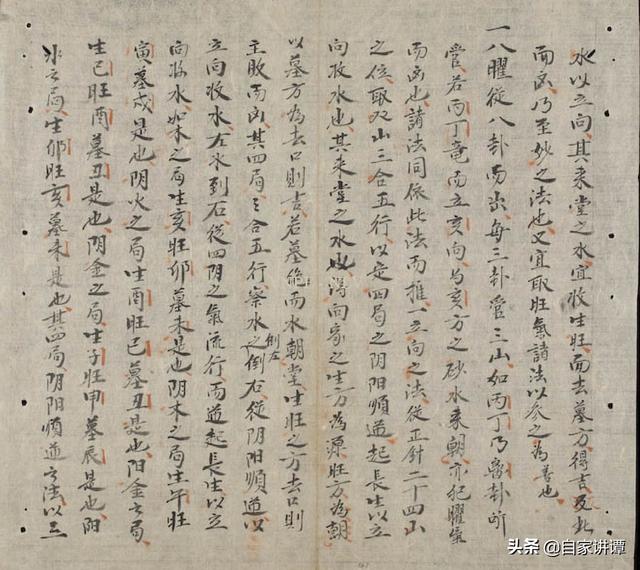 水以立向其来堂之水宜收生旺而去墓方得吉反此
而凶乃至妙之法也又宜取旺氣諸法以参之為善也
一八曜從八卦而出每三卦管三山如丙丁乃
管若丙丁竜而立亥向与亥方之砂水来朝亦犯曜氣
而凶也諸法同依此法而推一立向之法從正針二十四山
之位取双山三合五行以定四局之阴阳順逆起長生以立
向收水也其来堂之水必得向家之生方為源旺方為朝
以墓方為去口則吉若墓絶而水朝堂生旺之方去口則
主败而凶其四局三合五行察水之倒左倒右從阴阳順逆以
立向收水左水到右從四阴之氣流行而逆起長生以立
向收水如木之局生亥旺卯墓未是也阴木之局生午旺
寅墓戌是也阴火之局生酉旺巳墓丑是也阳金之局
生巳旺酉墓丑是也阴金之局生子旺申墓辰是也阳
水之局生卯旺亥墓未是也其四局阴阳順逆之法以三
头条 @自家讲谭